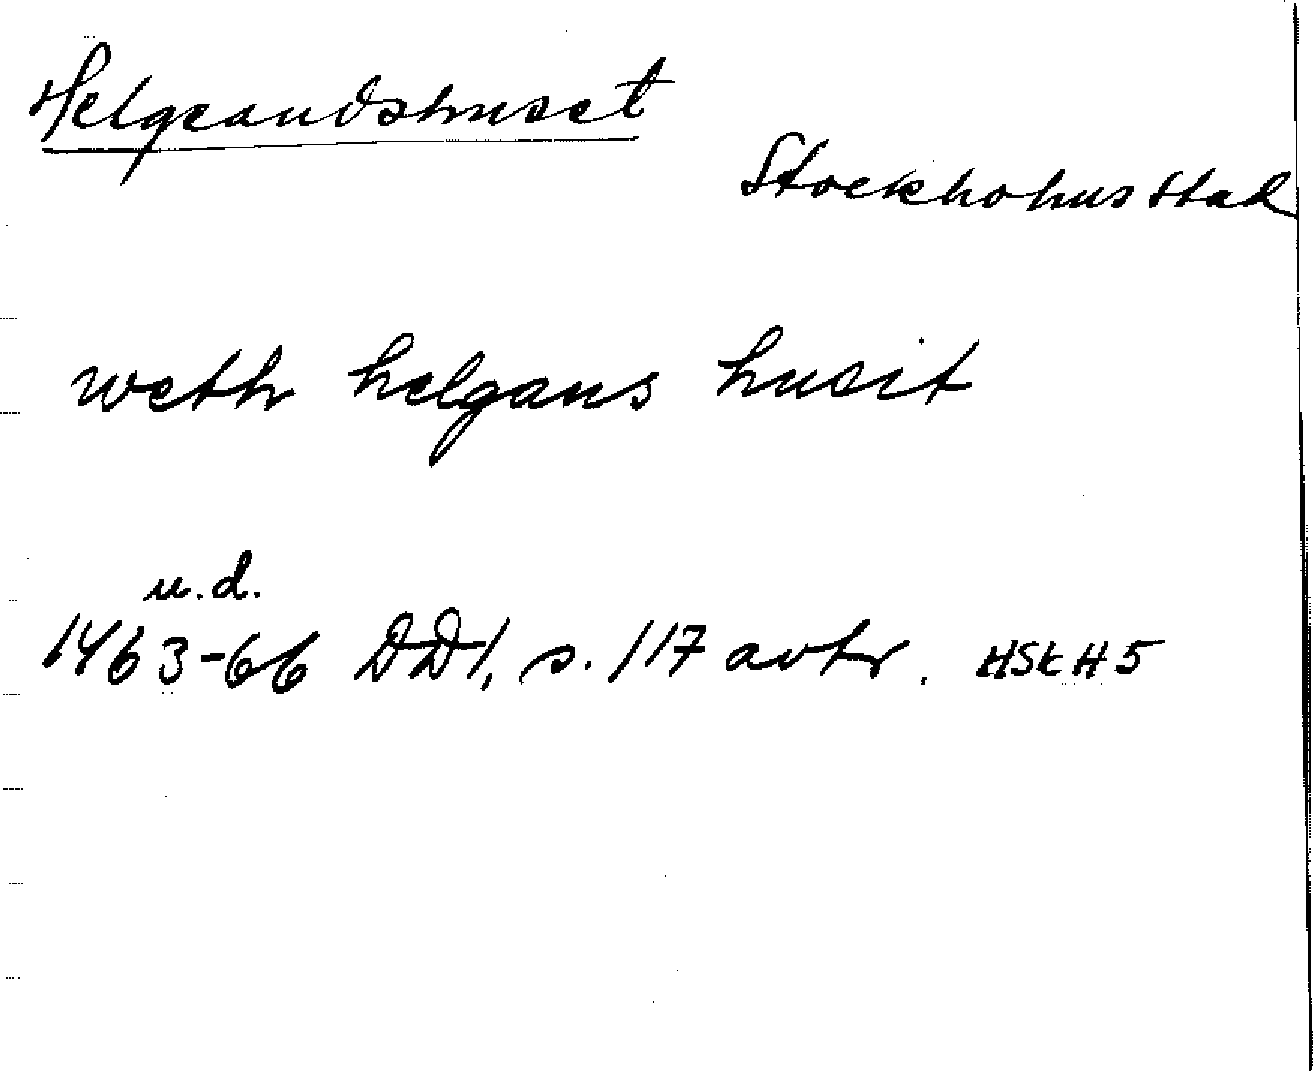 Helgeandshuset
Stockholms stad
weth helgans husit
u.d.
1463-66 DD1, s. 117 avtr. HSH 5